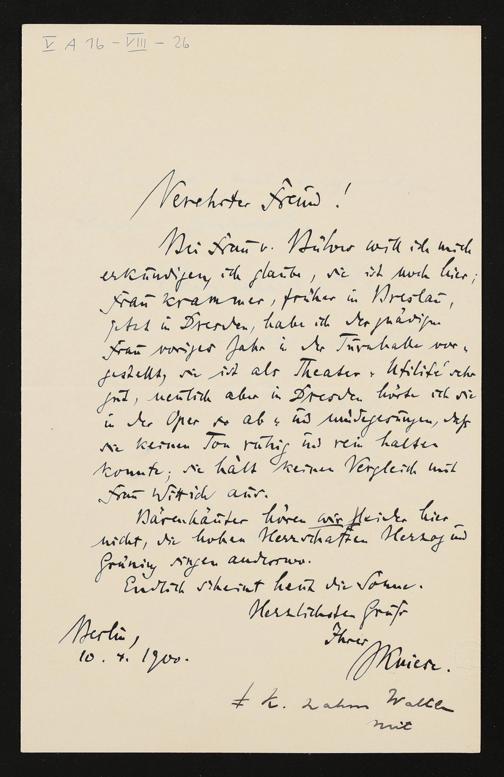 V A 16 - VIII - 26
Verehrter Freund!
Bei Frau v. Bülow will ich mich
erkundigen, ich glaube, sie ist noch hier;
Frau Krammer, früher in Breslau,
jetzt in Dresden, habe ich der gnädigen
Frau voriges Jahr in der Turnhalle vor-
gestellt, sie ist als Theater-Utilité sehr
gut, neulich aber in Dresden hörte ich sie
in der Oper so ab- und müdegesungen, daß
sie keinen Ton ruhig und rein halten
konnte; sie hält keinen Vergleich mit
Frau Wittich aus.
Bärenhäuter hören wir leider hier
nicht, die hohen Herrschaften Herzog und
Grüning singen anderswo.
Endlich scheint heut die Sonne.
Herzlichsten Gruß
Ihrer
JKniese.
Berlin,
10. 4. 1900.
K. nahm
mit